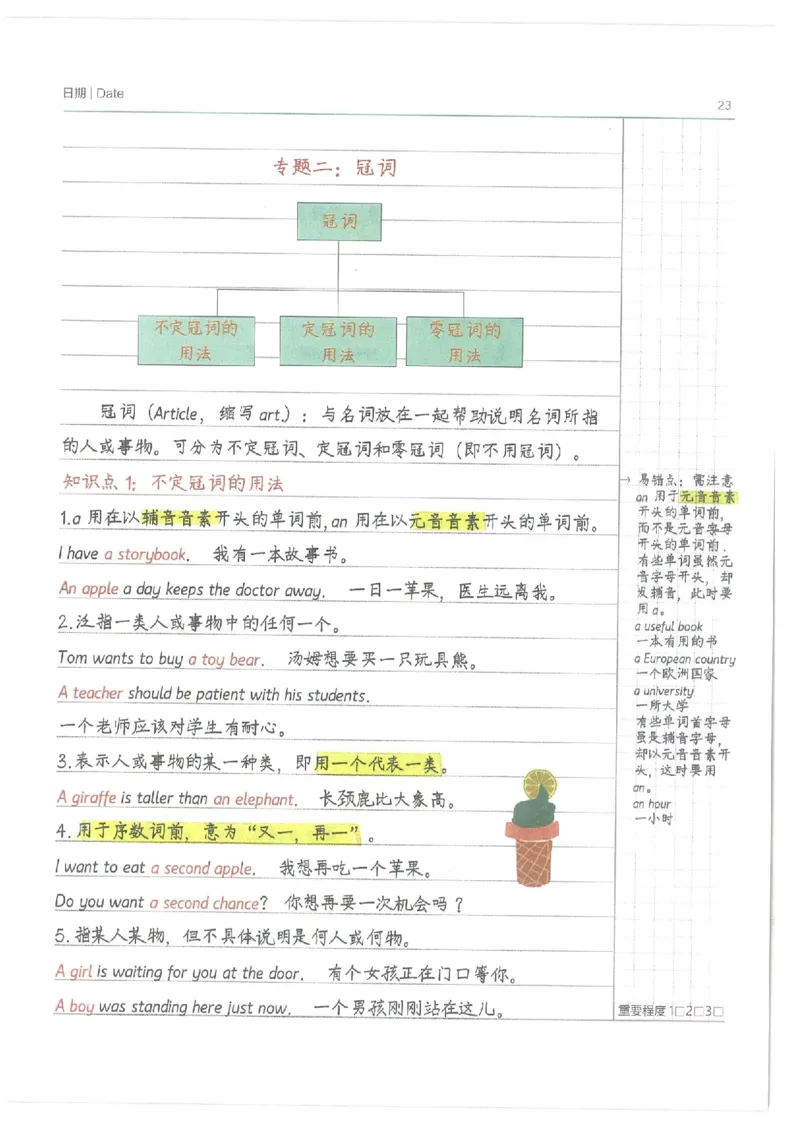 日期 | Date
23
专题二：冠词
冠词
不定冠词的
用法
定冠词的
用法
零冠词的
用法
冠词（Article，缩写 art.）：与名词放在一起帮助说明名词所指
的人或事物。可分为不定冠词、定冠词和零冠词（即不用冠词）。
知识点 1：不定冠词的用法
1.a 用在以辅音音素开头的单词前,an 用在以元音音素开头的单词前。
I have a storybook. 我有一本故事书。
An apple a day keeps the doctor away. 一日一苹果，医生远离我。
2.泛指一类人或事物中的任何一个。
Tom wants to buy a toy bear. 汤姆想要买一只玩具熊。
A teacher should be patient with his students.
一个老师应该对学生有耐心。
3.表示人或事物的某一种类，即用一个代表一类。
A giraffe is taller than an elephant. 长颈鹿比大象高。
4.用于序数词前，意为“又一，再一”。
I want to eat a second apple. 我想再吃一个苹果。
Do you want a second chance? 你想再要一次机会吗？
5.指某人某物，但不具体说明是何人或何物。
A girl is waiting for you at the door. 有个女孩正在门口等你。
A boy was standing here just now. 一个男孩刚刚站在这儿。
→ 易错点：需注意
an 用于元音音素
开头的单词前，
而不是元音字母
开头的单词前.
有些单词虽然元
音字母开头，却
发辅音，此时要
用 a。
a useful book
一本有用的书
a European country
一个欧洲国家
a university
一所大学
有些单词首字母
虽是辅音字母，
却以元音音素开
头，这时要用
an。
an hour
一小时
重要程度 1□2□3□